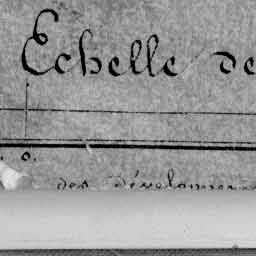 Echelle de
0.
des développemen